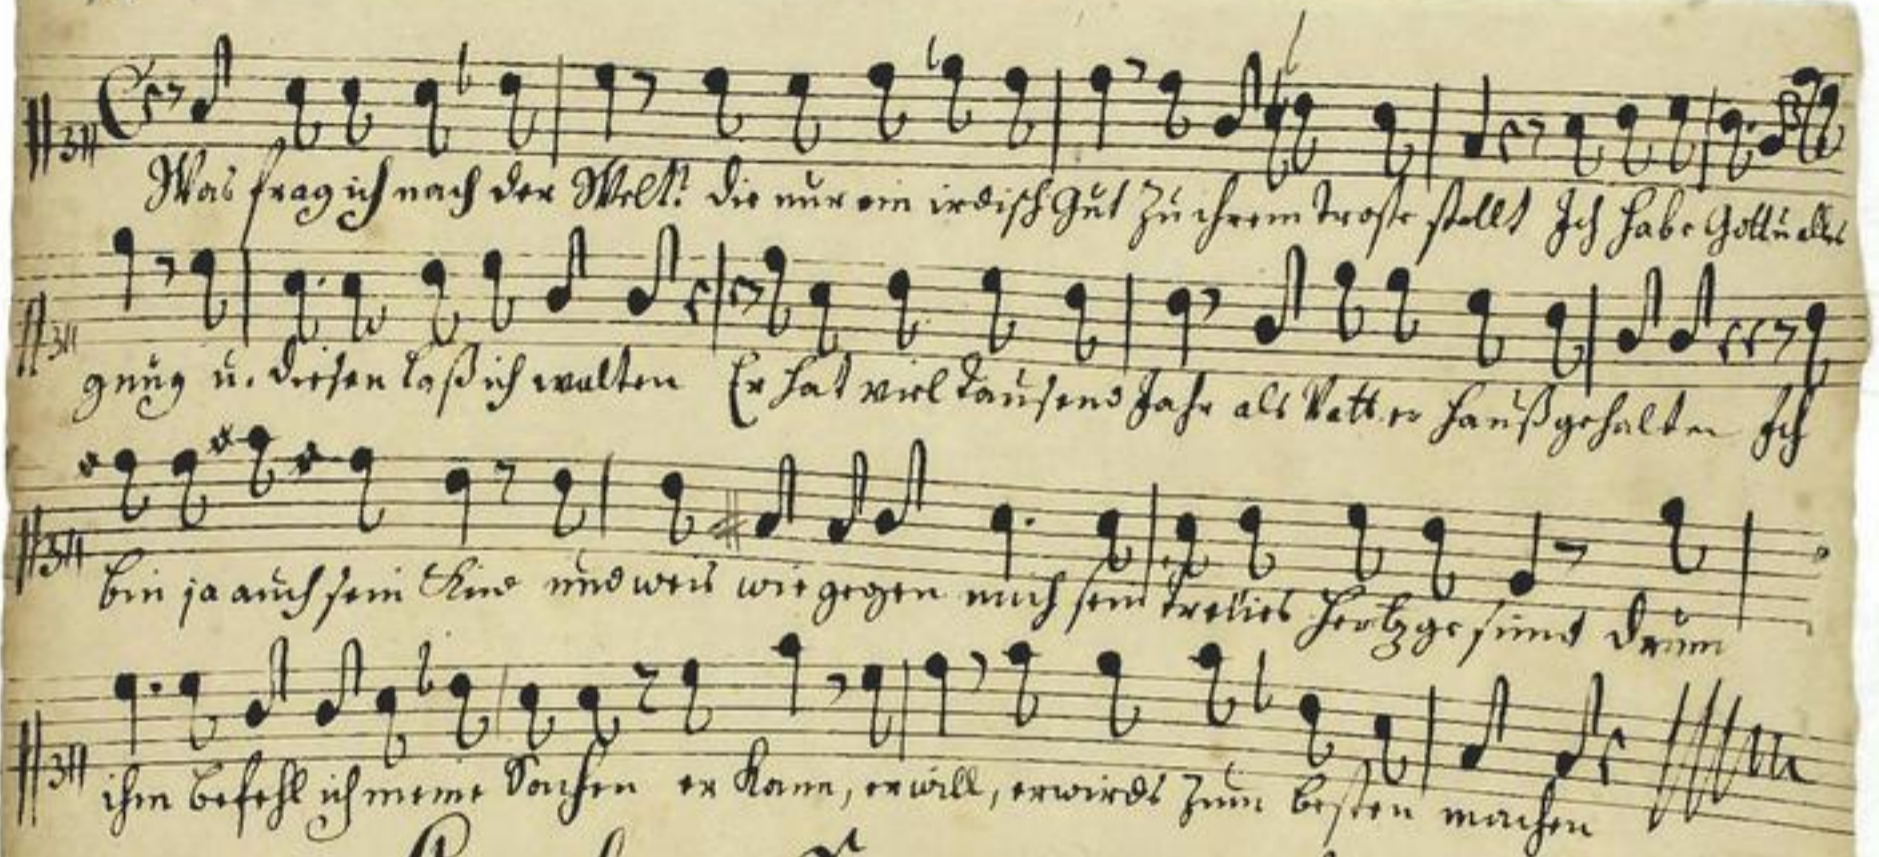 Was frag ich nach der Welt! die nur ein irdisch Gut zu ihrem troste stellt Ich habe Gott u alles
gnug u. diesen laß ich walten Er hat viel tausend Jahr als Vatter haußgehalten Ich
bin ja auch sein Kind und weis wie gegen mich sein treües Hertz gesinnt drum
ihm befehl ich meine Sachen er kann, er will, er wirds zum besten machen